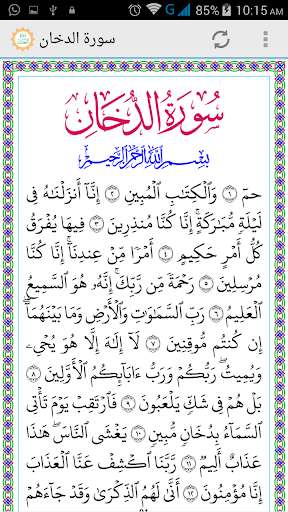 85% 10:15 AM
سورة الدخان
سُورَةُ الدُّخَانِ
بِسْمِ اللَّهِ الرَّحْمَٰنِ الرَّحِيمِ
حمٓ ١ وَٱلْكِتَٰبِ ٱلْمُبِينِ ٢ إِنَّآ أَنزَلْنَٰهُ فِى
لَيْلَةٍ مُّبَٰرَكَةٍ ۚ إِنَّا كُنَّا مُنذِرِينَ ٣ فِيهَا يُفْرَقُ
كُلُّ أَمْرٍ حَكِيمٍ ٤ أَمْرًا مِّنْ عِندِنَآ ۚ إِنَّا كُنَّا
مُرْسِلِينَ ٥ رَحْمَةً مِّن رَّبِّكَ ۚ إِنَّهُۥ هُوَ ٱلسَّمِيعُ
ٱلْعَلِيمُ ٦ رَبِّ ٱلسَّمَٰوَٰتِ وَٱلْأَرْضِ وَمَا بَيْنَهُمَآ ۖ
إِن كُنتُم مُّوقِنِينَ ٧ لَآ إِلَٰهَ إِلَّا هُوَ يُحْىِۦ
وَيُمِيتُ ۖ رَبُّكُمْ وَرَبُّ ءَابَآئِكُمُ ٱلْأَوَّلِينَ ٨
بَلْ هُمْ فِى شَكٍّ يَلْعَبُونَ ٩ فَٱرْتَقِبْ يَوْمَ تَأْتِى
ٱلسَّمَآءُ بِدُخَانٍ مُّبِينٍ ١٠ يَغْشَى ٱلنَّاسَ ۖ هَٰذَا
عَذَابٌ أَلِيمٌ ١١ رَّبَّنَا ٱكْشِفْ عَنَّا ٱلْعَذَابَ
إِنَّا مُؤْمِنُونَ ١٢ أَنَّىٰ لَهُمُ ٱلذِّكْرَىٰ وَقَدْ جَآءَهُمْ